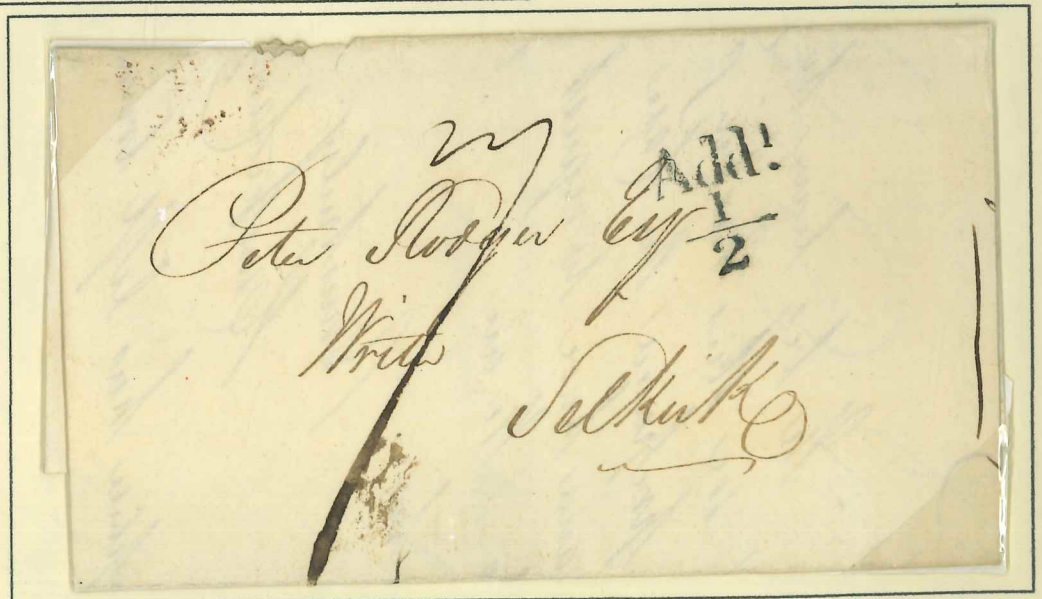 7
Addl
1
2
Peter Rodger Esqr
Writer
Selkirk